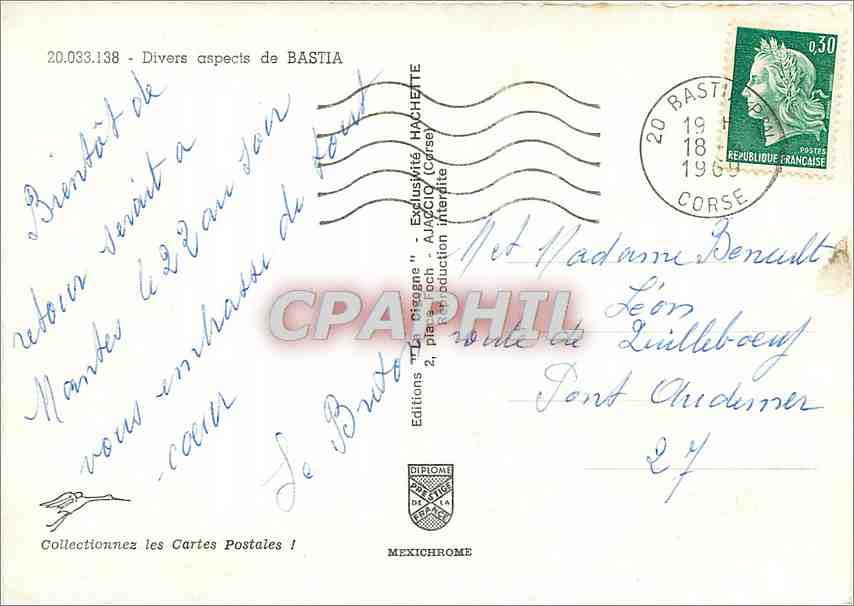 20.033.138 - Divers aspects de BASTIA
Bientôt de
retour serait a
Mantes le 22 au soir
vous embrasse de tout
coeur
Le Breton
Collectionnez les Cartes Postales !
Editions "La Cigogne" - Exclusivité HACHETTE
2, place Foch - AJACCIO (Corse)
Reproduction interdite
DIPLOME
PRESTIGE
DE LA
FRANCE
MEXICHROME
20 BASTIA
19 H
18
1969
CORSE
0,30
POSTES
REPUBLIQUE FRANÇAISE
M et Madame Benault
Léon
route de Quilleboeuf
Pont Audemer
27
CPAPHIL